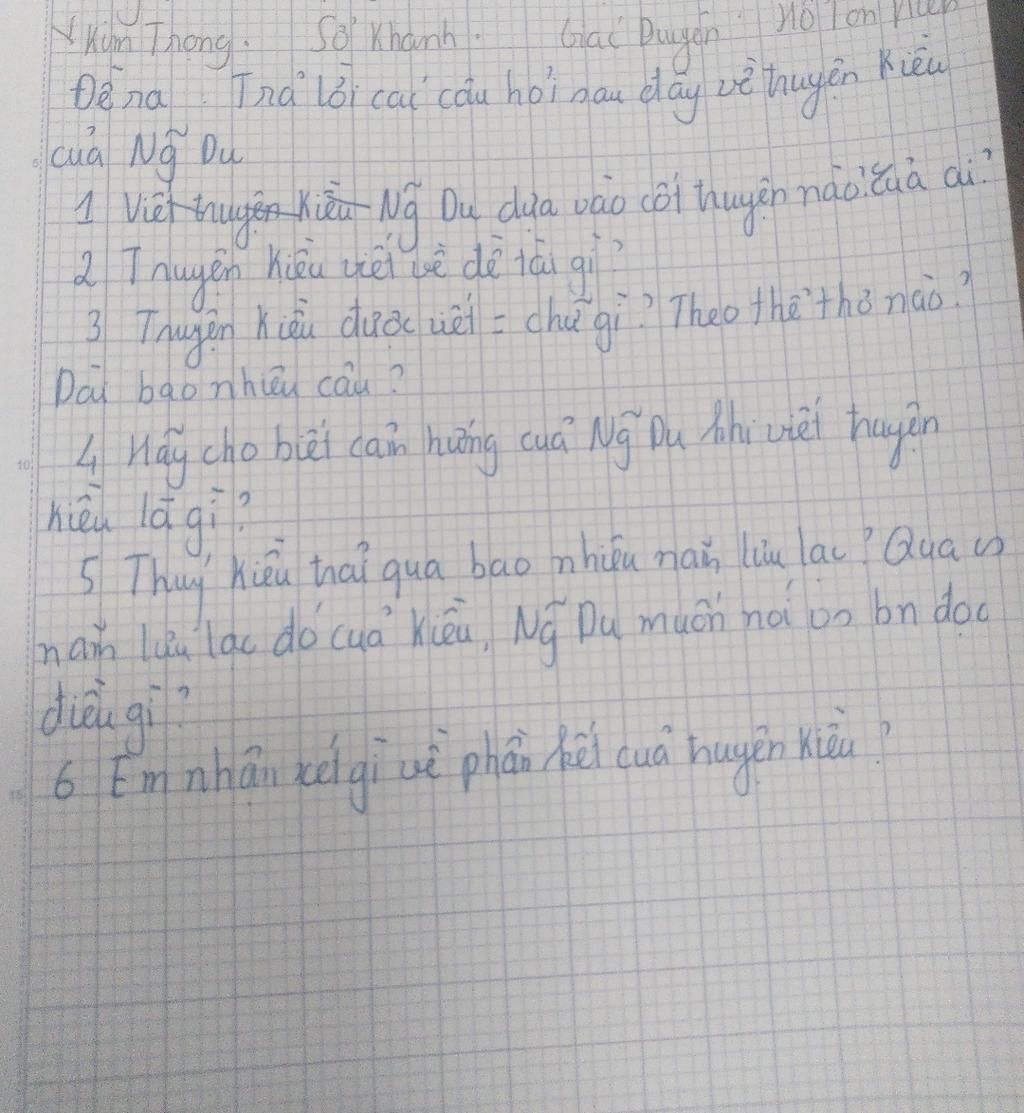 Kim Trọng. Sở Khanh. Giác Duyên Hồ Tôn Hiến
Đề ra. Trả lời các câu hỏi sau đây về truyện Kiều
của Ng̃ Du
1 Viết truyện Kiều Ng̃ Du dựa vào cốt truyện nào? của ai?
2 Truyện Kiều viết về đề tài gì?
3 Truyện Kiều được viết = chữ gì? Theo thể thơ nào?
Dài bao nhiêu câu?
4 Hãy cho biết cảm hứng của Ng̃ Du khi viết truyện
Kiều là gì?
5 Thuý Kiều trải qua bao nhiêu năm lưu lạc? Qua
năm lưu lạc đó của Kiều, Ng̃ Du muốn nói bn đọc
điều gì?
6 Em nhận xét gì về phần kết của truyện Kiều?